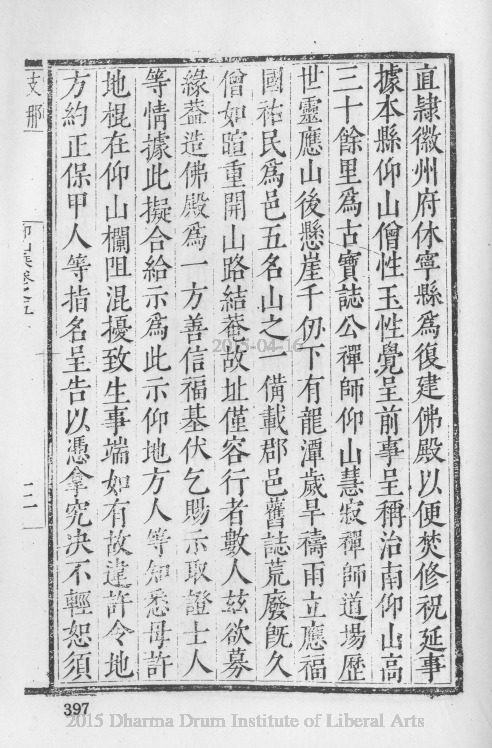 直隸徽州府休寧縣為復建佛殿以便焚修祝延事
據本縣仰山僧性玉性覺呈前事呈稱治南仰山高
三十餘里為古寶誌公禪師仰山慧寂禪師道場歷
世靈應山後懸崖千仞下有龍潭歲旱禱雨立應福
國祐民為邑五名山之一備載郡邑舊誌荒廢既久
僧如暄重開山路結菴故址僅容行者數人茲欲募
緣葢造佛殿為一方善信福基伏乞賜示取證士人
等情據此擬合給示為此示仰地方人等知悉毋許
地棍在仰山攔阻混擾致生事端如有故違許令地
方約正保甲人等指名呈告以憑拿究決不輕恕須
支那
仰山乘卷之五
二
397
2015-04-16
2015 Dharma Drum Institute of Liberal Arts